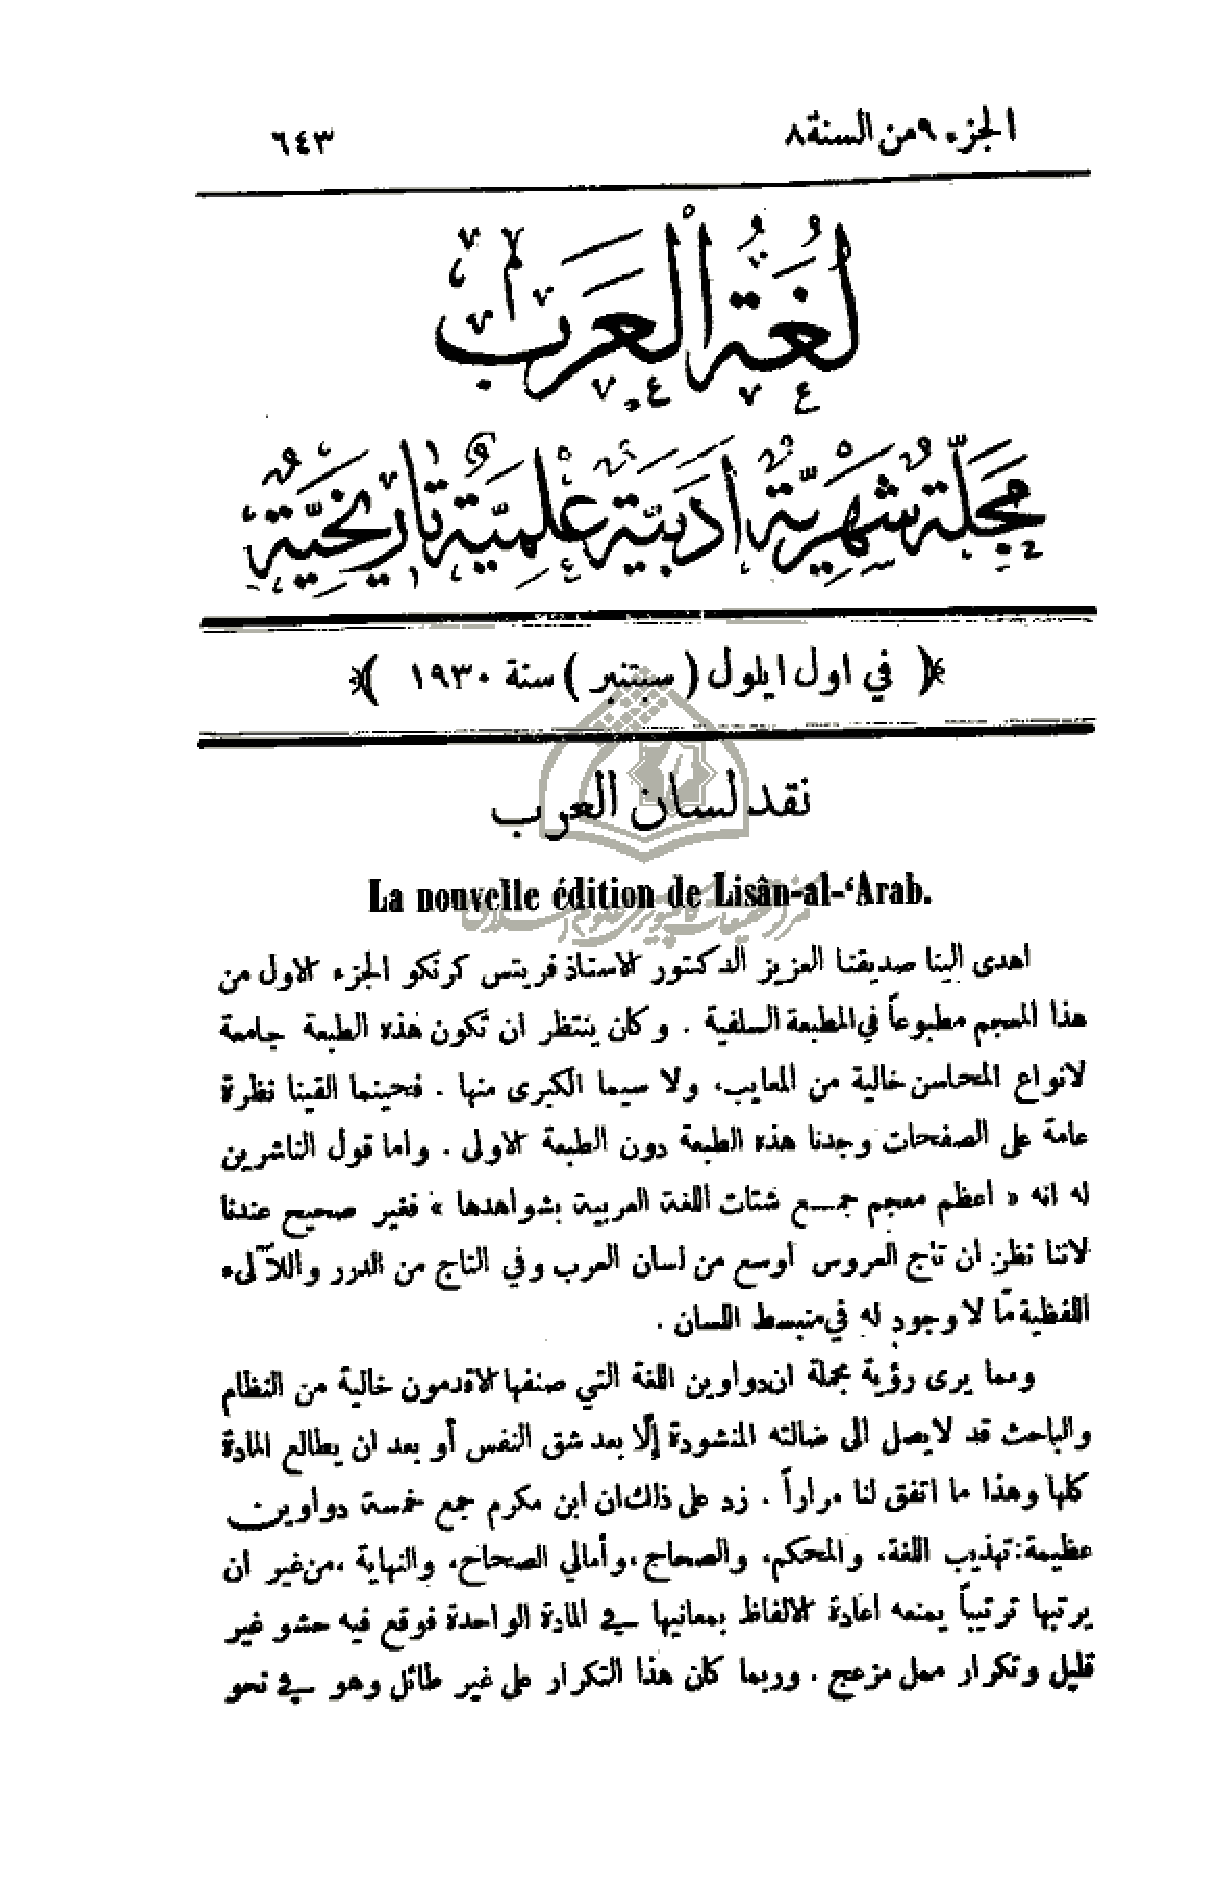 الجزء ٩ من السنة ٨
٦٤٣
لُغَةُ الْعَرَب
مَجَلَّة شَهْرِيَّة أَدَبِيَّة عِلْمِيَّة تَارِيخِيَّة
﴿ في اول ايلول ( سبتنبر ) سنة ١٩٣٠ ﴾
نقد لسان العرب
La nouvelle édition de Lisân-al-‘Arab.
اهدى الينا صديقنا العزيز الدكتور الاستاذ فريتس كرنكو الجزء الاول من
هذا المعجم مطبوعاً في المطبعة السلفية . وكان ينتظر ان تكون هذه الطبعة جامعة
لانواع المحاسن خالية من المعايب، ولا سيما الكبرى منها . فحينما القينا نظرة
عامة على الصفحات وجدنا هذه الطبعة دون الطبعة الاولى . واما قول الناشرين
له انه « اعظم معجم جمع شتات اللغة العربية بشواهدها » فغير صحيح عندنا
لاننا نظن ان تاج العروس أوسع من لسان العرب وفي التاج من الدرر واللآلىء
اللفظية مّا لا وجود له في منبسط اللسان .
ومما يرى رؤية مجملة ان دواوين اللغة التي صنفها الاقدمون خالية من النظام
والباحث قد لا يصل الى ضالته المنشودة إلّا بعد شق النفس أو بعد ان يطالع المادة
كلها وهذا ما اتفق لنا مراراً . زد على ذلك ان ابن مكرم جمع خمسة دواوين
عظيمة: تهذيب اللغة، والمحكم، والصحاج، وأمالي الصحاح، والنهاية ،من غير ان
يرتبها ترتيباً يمنعه اعادة الالفاظ بمعانيها في المادة الواحدة فوقع فيه حشو غير
قليل وتكرار ممل مزعج . وربما كان هذا التكرار على غير طائل وهو في نحو